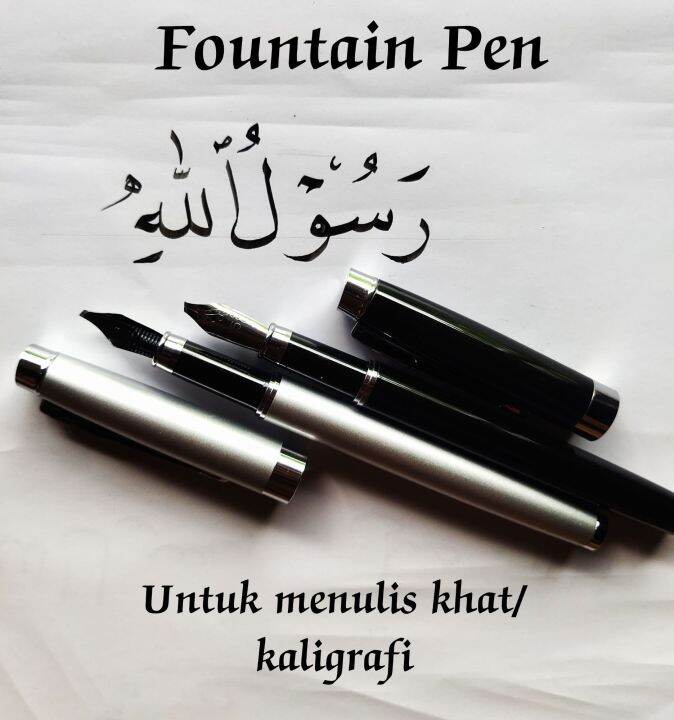 Fountain Pen
رَسُوْلُ اللّٰهِ
Untuk menulis khat/
kaligrafi